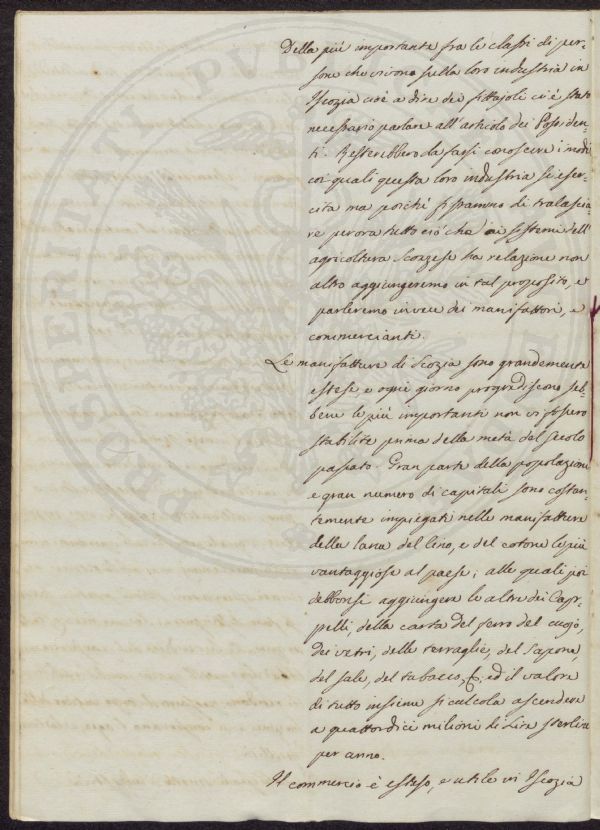 Della più importante fra le classi di per-
sone che vivono sulla loro industria in
Iscozia cioè a dire dei fittajoli ci è stato
necessario parlare all'articolo dei Possiden-
ti. Resterebbero da farsi conoscere i modi
coi quali questa loro industria si eser-
cita ma poichè fissammo di tralascia-
re per ora tutto ciò che ai sistemi dell'
agricoltura Scozzese ha relazione non
altro aggiungeremo in tal proposito, e
parleremo invece dei manifattori, e
commercianti.
Le manifatture di Scozia sono grandemente
estese e ogni giorno progrediscono seb-
bene le più importanti non vi fossero
stabilite prima della metà del secolo
passato. Gran parte della popolazione
e gran numero di capitali sono costan-
temente impiegati nelle manifatture
della lana del lino, e del cotone le più
vantaggiose al paese; alle quali poi
debbonsi aggiungere le altre dei Cap-
pelli, della carta del ferro del cuojo,
dei vetri, delle terraglie, del sapone,
del sale, del tabacco, &, ed il valore
di tutto insieme si calcola ascendere
a quattordici milioni di Lire sterline
per anno.
Il commercio è esteso, e utile in Iscozia
PROSPERITATI PVBL